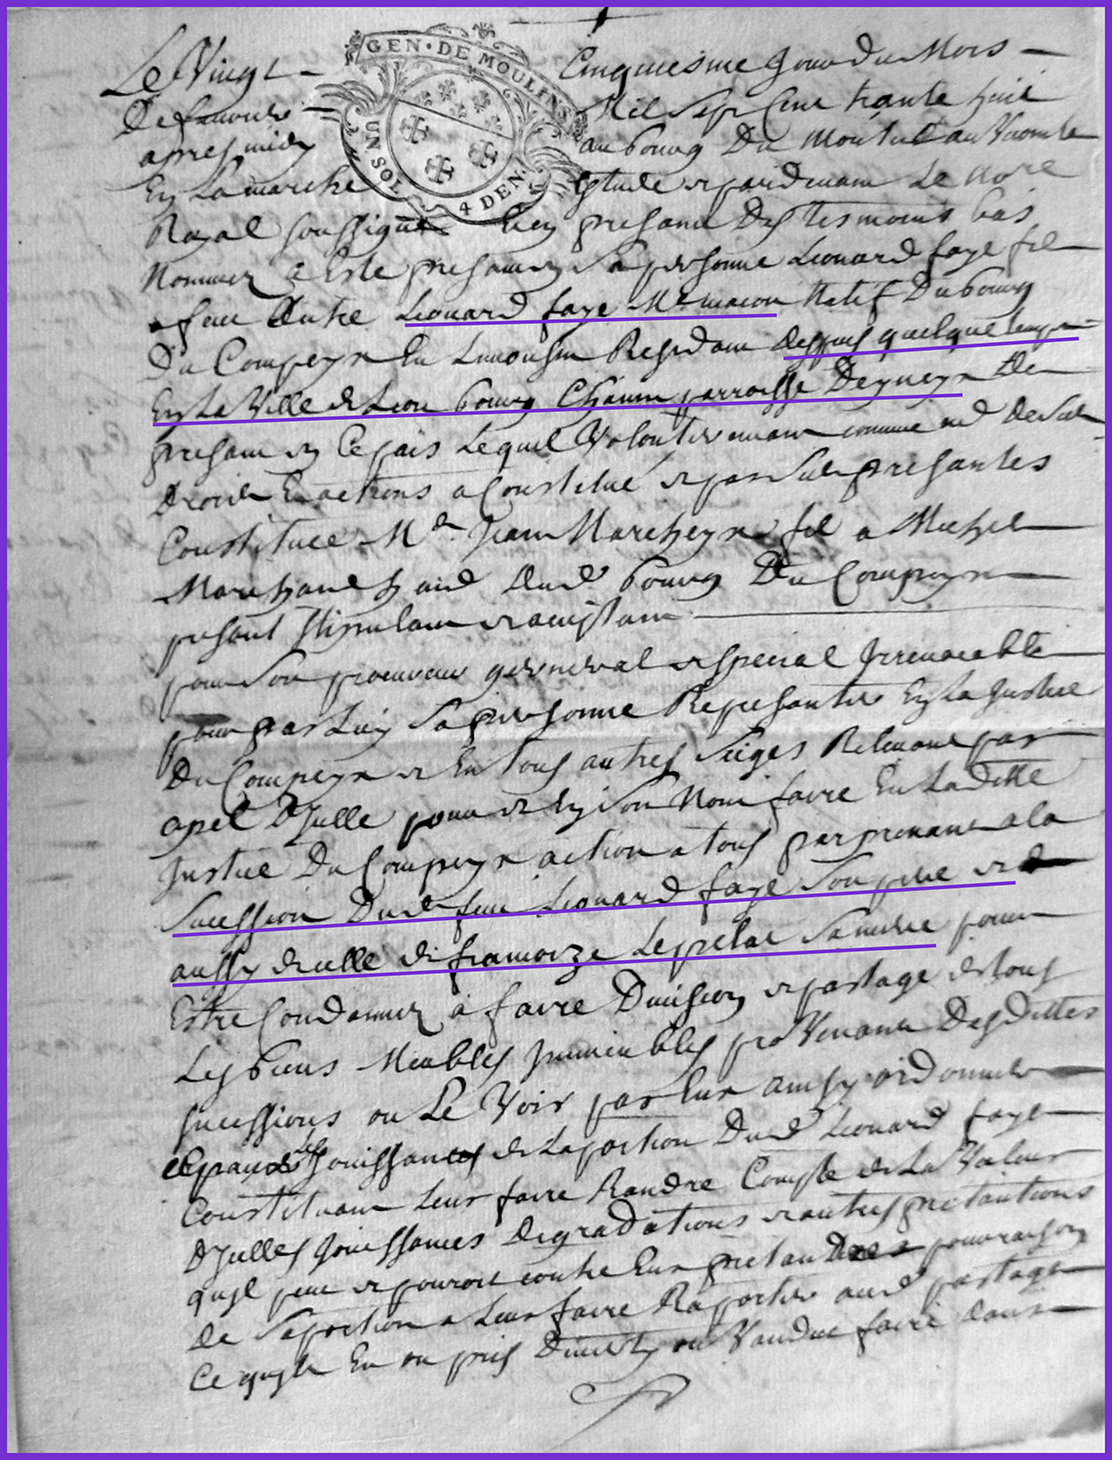 Le Vingt Cinquiesme Jour du Mois
GEN · DE MOULINS
UN SOL 4 DEN.
De Mil Sept Cent trante huit
apres midy au bourg Du
En La marche Estude et pardevant Le no.re
Royal soussigné presand Des tesmoins bas
Nommez a Este presant En sa personne Leonard faye fil
a feu Autre Leonard faye M.e macon Natif Du bourg
Du Compeyx En Limousin Residant despuis quelque temps
En La Ville de Lion bourg parroisse De
presant En Ce pais Lequel Volontairement comme
Droits et actions a Constitué et par Les presantes
Constitue M.d Jean Marcheyx fil a Michel
Marchand bourg Du Compeyx
presant stipulant et acceptant
pour son procureur general et special Irrevocable
pour par Luy sa personne Representer En La Justice
Du Compeyx et En tous autres sieges Relevant par
apel D'Icelle pour et En son Nom faire En La ditte
Justice Du Compeyx action a tous parprenant a la
Sucession Dud feu Leonard faye Son pere et
aussy de celle de francoize Sa mere pour
Estre Condamnez a faire Division et partage de tous
Les biens Meubles Immeubles pro Venant Desdittes
sucessions ou Le Voir par Eux ainsy ordonner
Jouissances de La portion Dud Leonard faye
Constituant Leur faire Randre Compte de La Valeur
D'Icelles Jouissances Degradations et autres pretantions
qu'il peut et pouroit contre Eux pretandre pour raison
de Sa portion a Leur faire Raporter aud partage
Ce qu'ils En on pris ou Vandu faire dans